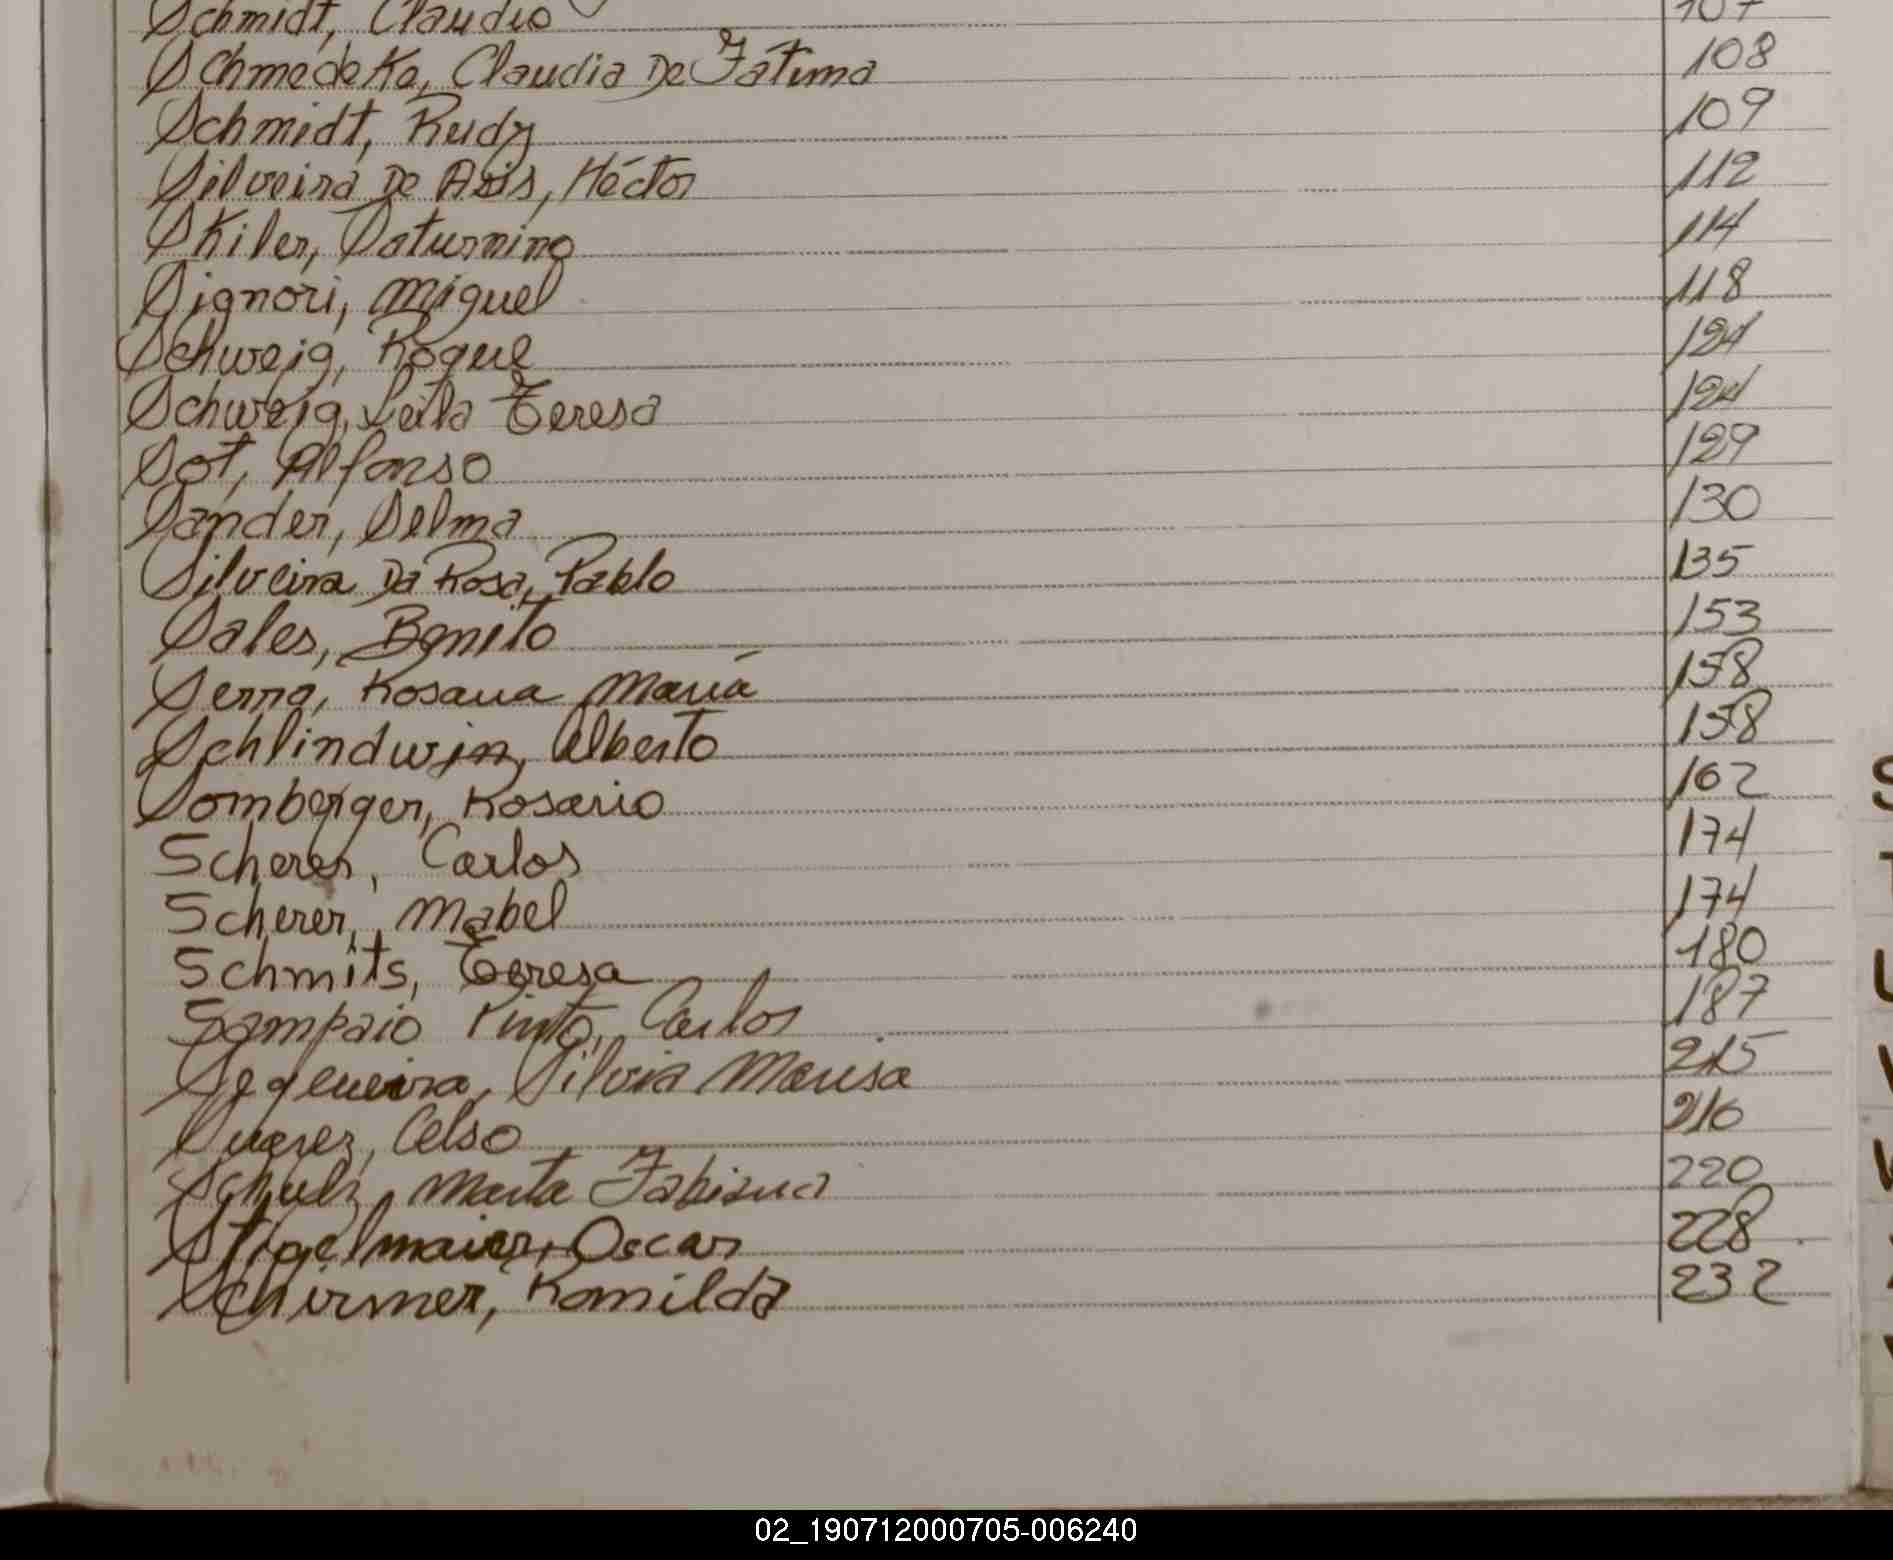 Schmidt, Claudio 107
Schmedeke, Claudia De Fátima 108
Schmidt, Rudy 109
Silveira De Asis, Héctor 112
Skiler, Saturnino 114
Signori, Miguel 118
Schweig, Roque 124
Schweig, Leila Teresa 124
Sot, Alfonso 129
Sander, Selma 130
Silveira Da Rosa, Pablo 135
Sales, Benito 153
Serra, Rosana María 158
Schlindwin, Alberto 158
Somberger, Rosario 162
Scherer, Carlos 174
Scherer, Mabel 174
Schmits, Teresa 180
Sampaio Pinto, Carlos 187
Segueira, Silvia Marisa 215
Suarez, Celso 216
Schulz, Marta Fabiana 220
Stigelmaier, Oscar 228
Schirmer, Romilda 232
S
T
U
V
W
02_190712000705-006240